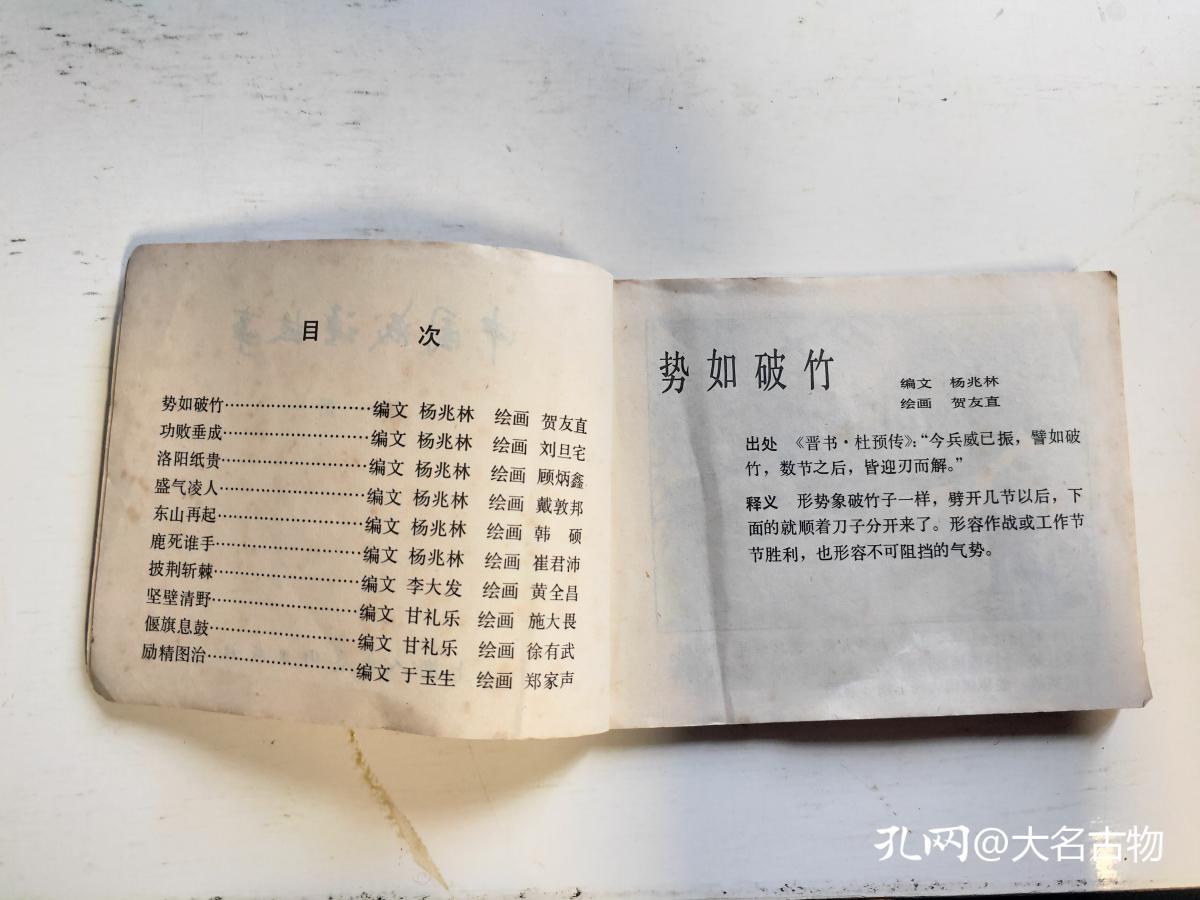 目 次
势如破竹……………………编文 杨兆林 绘画 贺友直
功败垂成……………………编文 杨兆林 绘画 刘旦宅
洛阳纸贵……………………编文 杨兆林 绘画 顾炳鑫
盛气凌人……………………编文 杨兆林 绘画 戴敦邦
东山再起……………………编文 杨兆林 绘画 韩 硕
鹿死谁手……………………编文 杨兆林 绘画 崔君沛
披荆斩棘……………………编文 李大发 绘画 黄全昌
坚壁清野……………………编文 甘礼乐 绘画 施大畏
偃旗息鼓……………………编文 甘礼乐 绘画 徐有武
励精图治……………………编文 于玉生 绘画 郑家声
势如破竹
编文 杨兆林
绘画 贺友直
出处 《晋书·杜预传》：“今兵威已振，譬如破
竹，数节之后，皆迎刃而解。”
释义 形势象破竹子一样，劈开几节以后，下
面的就顺着刀子分开来了。形容作战或工作节
节胜利，也形容不可阻挡的气势。
孔网@大名古物